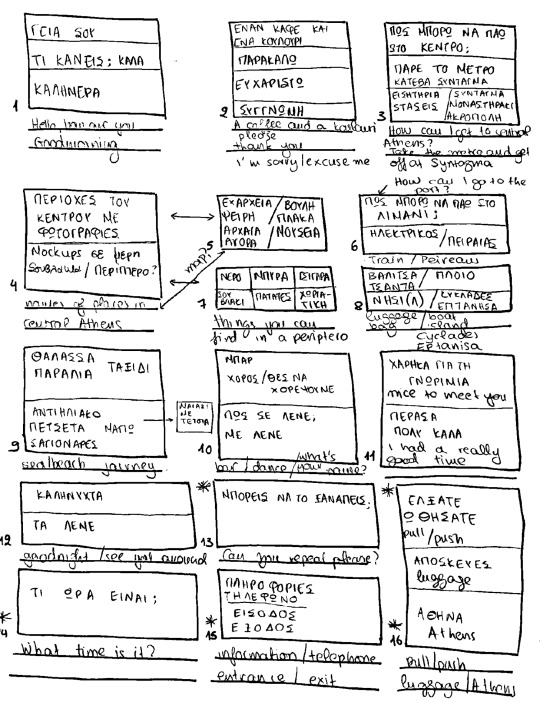 ΓΕΙΑ ΣΟΥ
ΤΙ ΚΑΝΕΙΣ; ΚΑΛΑ
ΚΑΛΗΜΕΡΑ
1
Hello / how are you
Goodmorning
ΕΝΑΝ ΚΑΦΕ ΚΑΙ
ΕΝΑ ΚΟΥΛΟΥΡΙ
ΠΑΡΑΚΑΛΩ
ΕΥΧΑΡΙΣΤΩ
ΣΥΓΓΝΩΜΗ
2
A coffee and a koulouri
please
thank you
I'm sorry/excuse me
ΠΩΣ ΜΠΟΡΩ ΝΑ ΠΑΩ
ΣΤΟ ΚΕΝΤΡΟ;
ΠΑΡΕ ΤΟ ΜΕΤΡΟ
ΚΑΤΕΒΑ ΣΥΝΤΑΓΜΑ
ΕΙΣΗΤΗΡΙΑ / ΣΥΝΤΑΓΜΑ
STASEIS / ΜΟΝΑΣΤΗΡΑΚΙ
ΑΚΡΟΠΟΛΗ
3
How can I get to central
Athens?
Take the metro and get
off at Syntagma
ΠΕΡΙΟΧΕΣ ΤΟΥ
ΚΕΝΤΡΟΥ ΜΕ
ΦΩΤΟΓΡΑΦΙΕΣ
Mockups ΣΕ ΜΕΡΗ
Souvlaki / ΠΕΡΙΠΤΕΡΟ?
4
names of places in
central Athens
map?
5
ΕΞΑΡΧΕΙΑ / ΒΟΥΛΗ
ΨΕΙΡΗ / ΠΛΑΚΑ
ΑΡΧΑΙΑ / ΜΟΥΣΕΙΑ
ΑΓΟΡΑ
How can I go to the
port?
ΠΩΣ ΜΠΟΡΩ ΝΑ ΠΑΩ ΣΤΟ
ΛΙΜΑΝΙ;
ΗΛΕΚΤΡΙΚΟΣ / ΠΕΙΡΑΙΑΣ
6
Train / Peireaus
ΝΕΡΟ ΜΠΥΡΑ ΤΣΙΓΑΡΑ
ΣΟΥΒΛΑΚΙ ΠΑΤΑΤΕΣ ΧΩΡΙΑΤΙΚΗ
7
things you can
find in a periptero
ΒΑΛΙΤΣΑ / ΠΛΟΙΟ
ΤΣΑΝΤΑ
ΝΗΣΙ(Α) / ΚΥΚΛΑΔΕΣ
ΕΠΤΑΝΗΣΑ
8
luggage / boat
bag / island
Cyclades
Eptanisa
ΘΑΛΑΣΣΑ
ΠΑΡΑΛΙΑ ΤΑΞΙΔΙ
ΑΝΤΗΛΙΑΚΟ
ΠΕΤΣΕΤΑ ΜΑΓΙΩ
ΣΑΓΙΟΝΑΡΕΣ
9
sea/beach journey
ΜΠΑΡ
ΧΟΡΟΣ / ΘΕΣ ΝΑ
ΧΟΡΕΨΟΥΜΕ
ΠΩΣ ΣΕ ΛΕΝΕ;
ΜΕ ΛΕΝΕ
10
bar / dance / what's
your name?
ΧΑΡΗΚΑ ΓΙΑ ΤΗ
ΓΝΩΡΙΜΙΑ
nice to meet you
ΠΕΡΑΣΑ
ΠΟΛΥ ΚΑΛΑ
I had a really
good time
11
ΚΑΛΗΝΥΧΤΑ
ΤΑ ΛΕΜΕ
12
goodnight / see you around
ΜΠΟΡΕΙΣ ΝΑ ΤΟ ΞΑΝΑΠΕΙΣ;
13
Can you repeat please?
ΕΛΞΑΤΕ
ΩΘΗΣΑΤΕ
pull/push
ΑΠΟΣΚΕΥΕΣ
luggage
ΑΘΗΝΑ
Athens
16
pull/push
luggage / Athens
ΤΙ ΩΡΑ ΕΙΝΑΙ;
14
What time is it?
ΠΛΗΡΟΦΟΡΙΕΣ
ΤΗΛΕΦΩΝΟ
ΕΙΣΟΔΟΣ
ΕΞΟΔΟΣ
15
information / telephone
entrance / exit